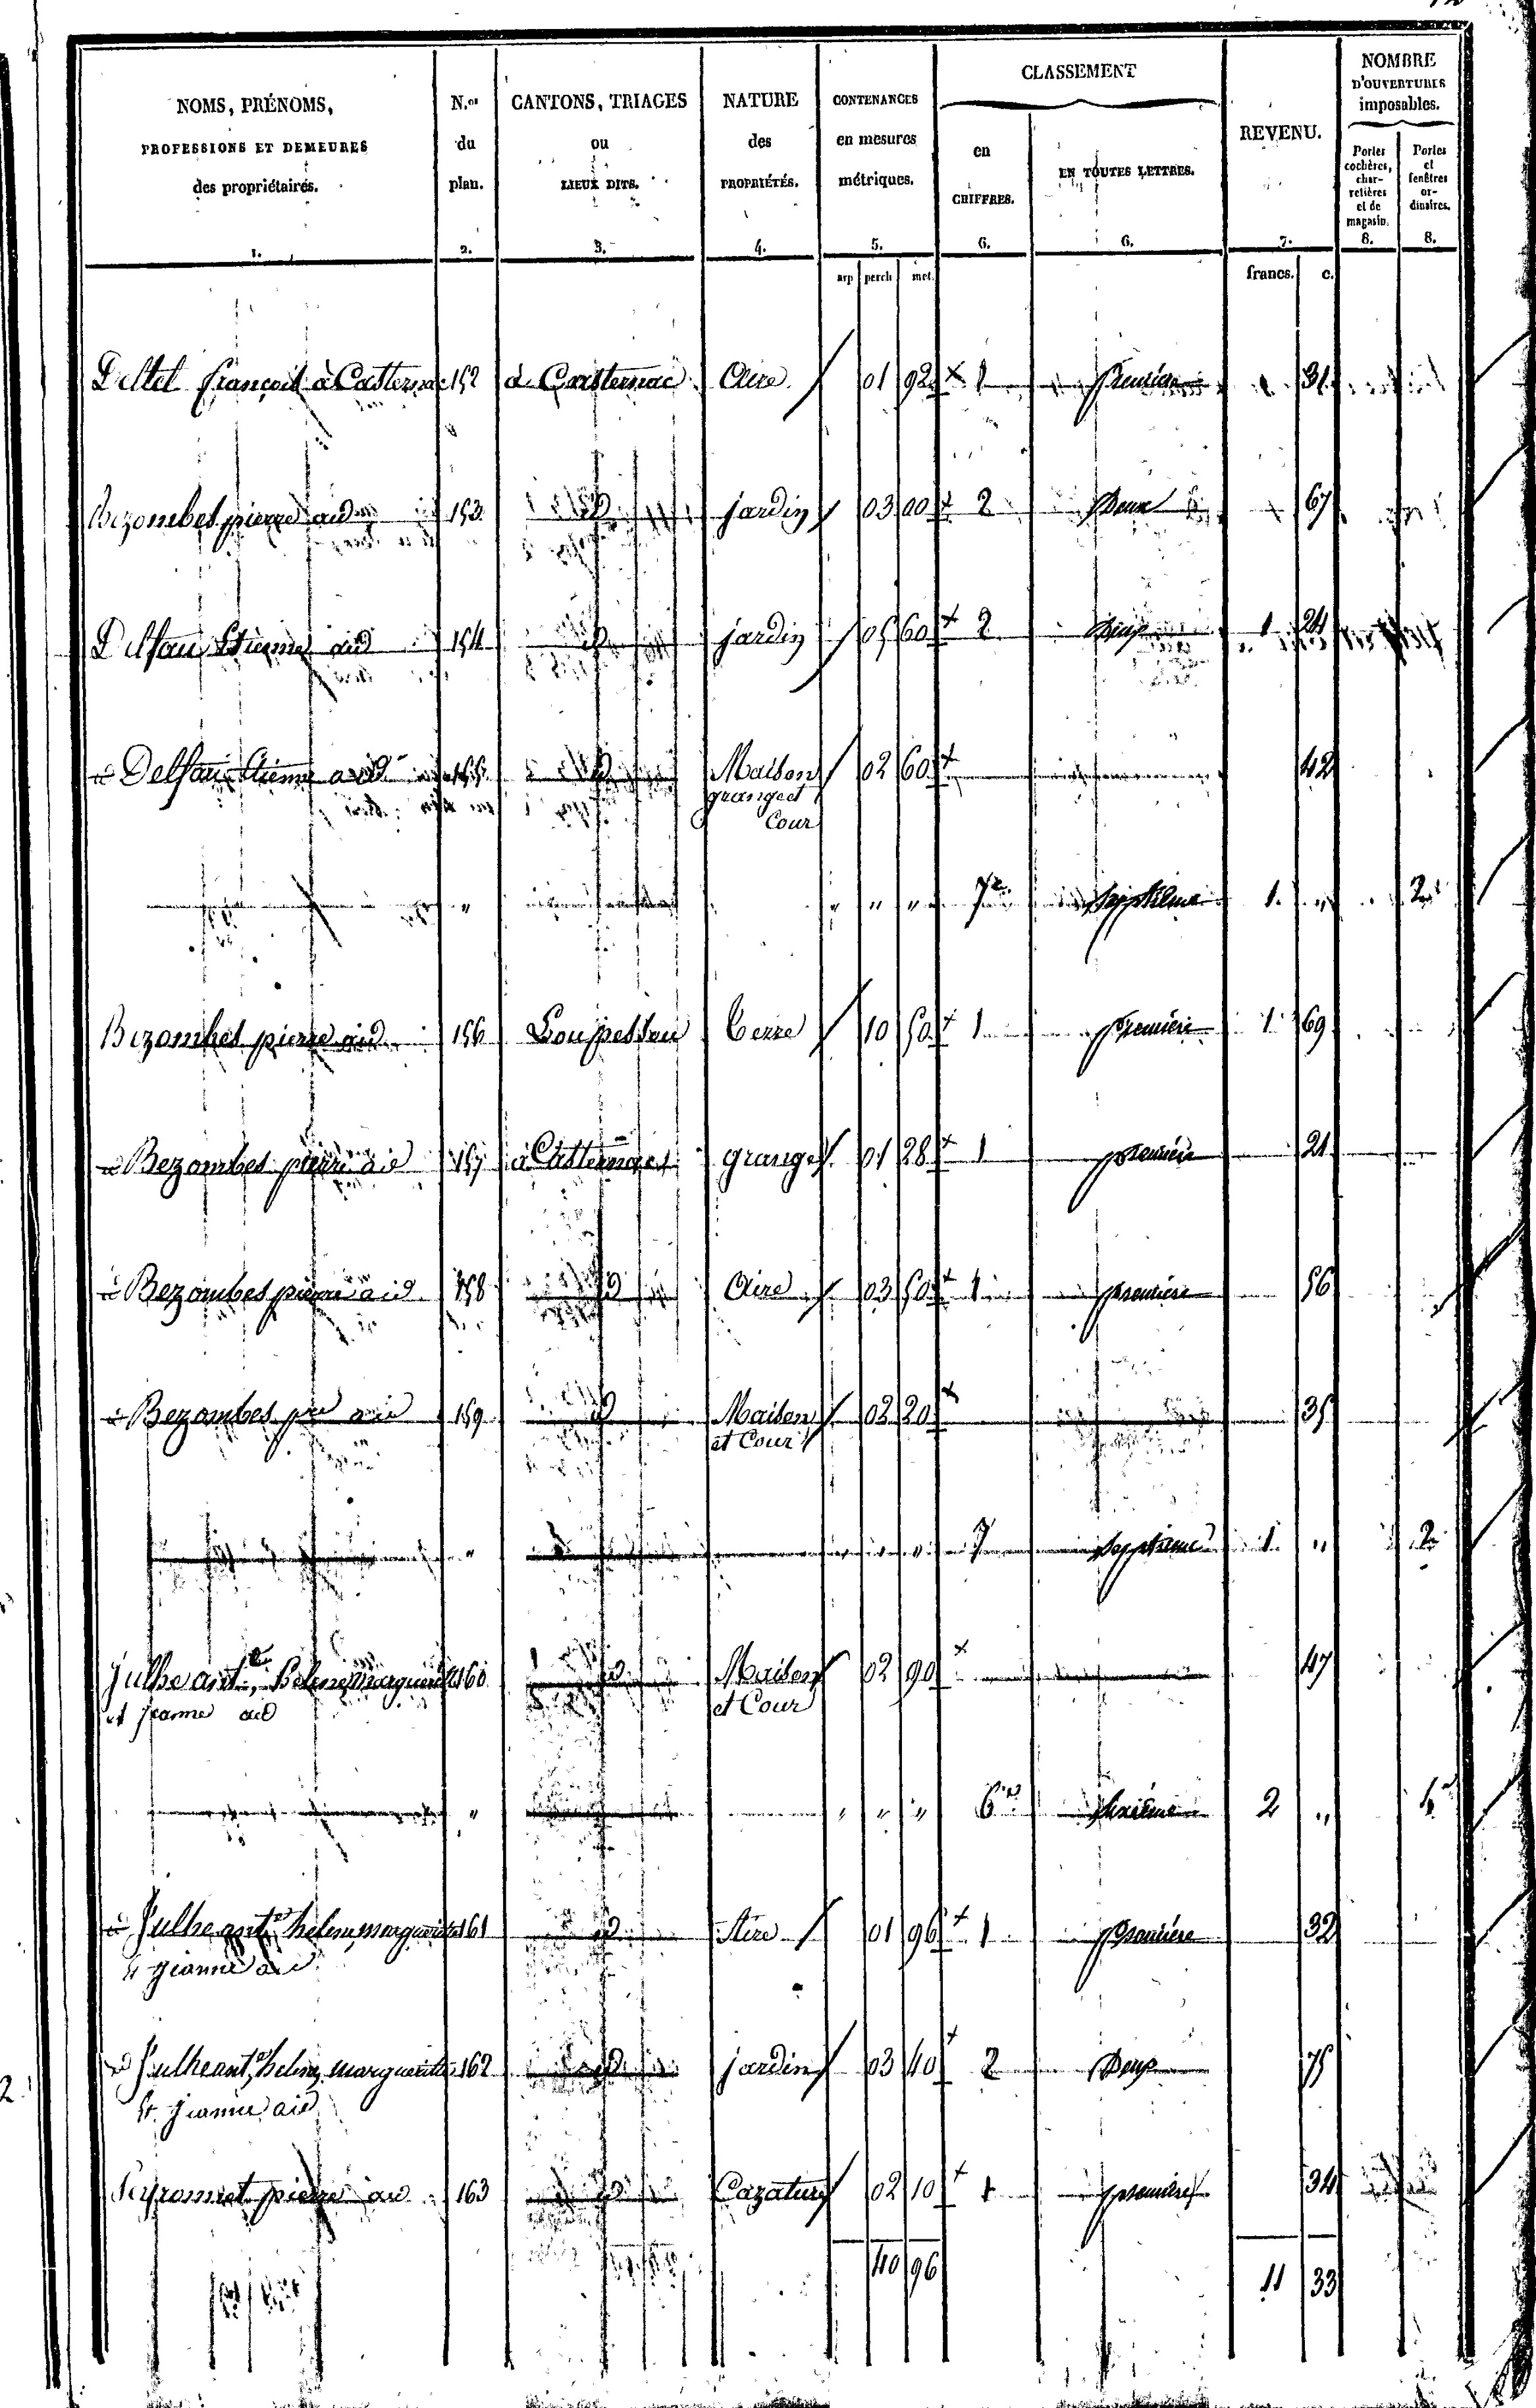 NOMS, PRÉNOMS,
PROFESSIONS ET DEMEURES
des propriétaires.
1.
N.os
du
plan.
2.
CANTONS, TRIAGES
ou
LIEUX DITS.
3.
NATURE
des
PROPRIÉTÉS.
4.
CONTENANCES
en mesures
métriques.
5.
CLASSEMENT
en
CHIFFRES.
6.
EN TOUTES LETTRES.
6.
REVENU.
7.
NOMBRE
D'OUVERTURES
imposables.
Portes
cochères,
char-
retières
et de
magasin.
8.
Portes
et
fenêtres
or-
dinaires.
8.
arp perch met. francs. c.
Deltel françois à Casternac 152 à Casternac Aire 01 92 1 première 31
Bezombes pierre aid 153 id jardin 03 00 2 Deux 67
Delfau Etienne aid 154 id jardin 05 60 2 Deux 1 24
Delfau Etienne aid 155 id Maison 02 60 42
grange et
Cour
" " " " 7e septième 1 " 2
Bezombes pierre aid 156 Loupessou Terre 10 50 1 première 1 69
Bezombes pierre aid 157 à Casternac grange 01 28 1 première 21
Bezombes pierre aid 158 id Aire 03 50 1 première 56
Bezombes pre aid 159 id Maison 02 20 35
et Cour
" " " " 7 septième 1 " 2
Julhe ante, Helene, marguerite 160 id Maison 02 90 47
et jeanne aid et Cour
" " " " 6e sixième 2 " 4
Julhe ante helene, marguerite 161 id Aire 01 96 1 première 32
et jeanne aid
Julhe ante, helene, marguerite 162 id jardin 03 40 2 Deux 75
et jeanne aid
Peyronnet pierre aid 163 id Cazature 02 10 1 première 34
40 96 11 33